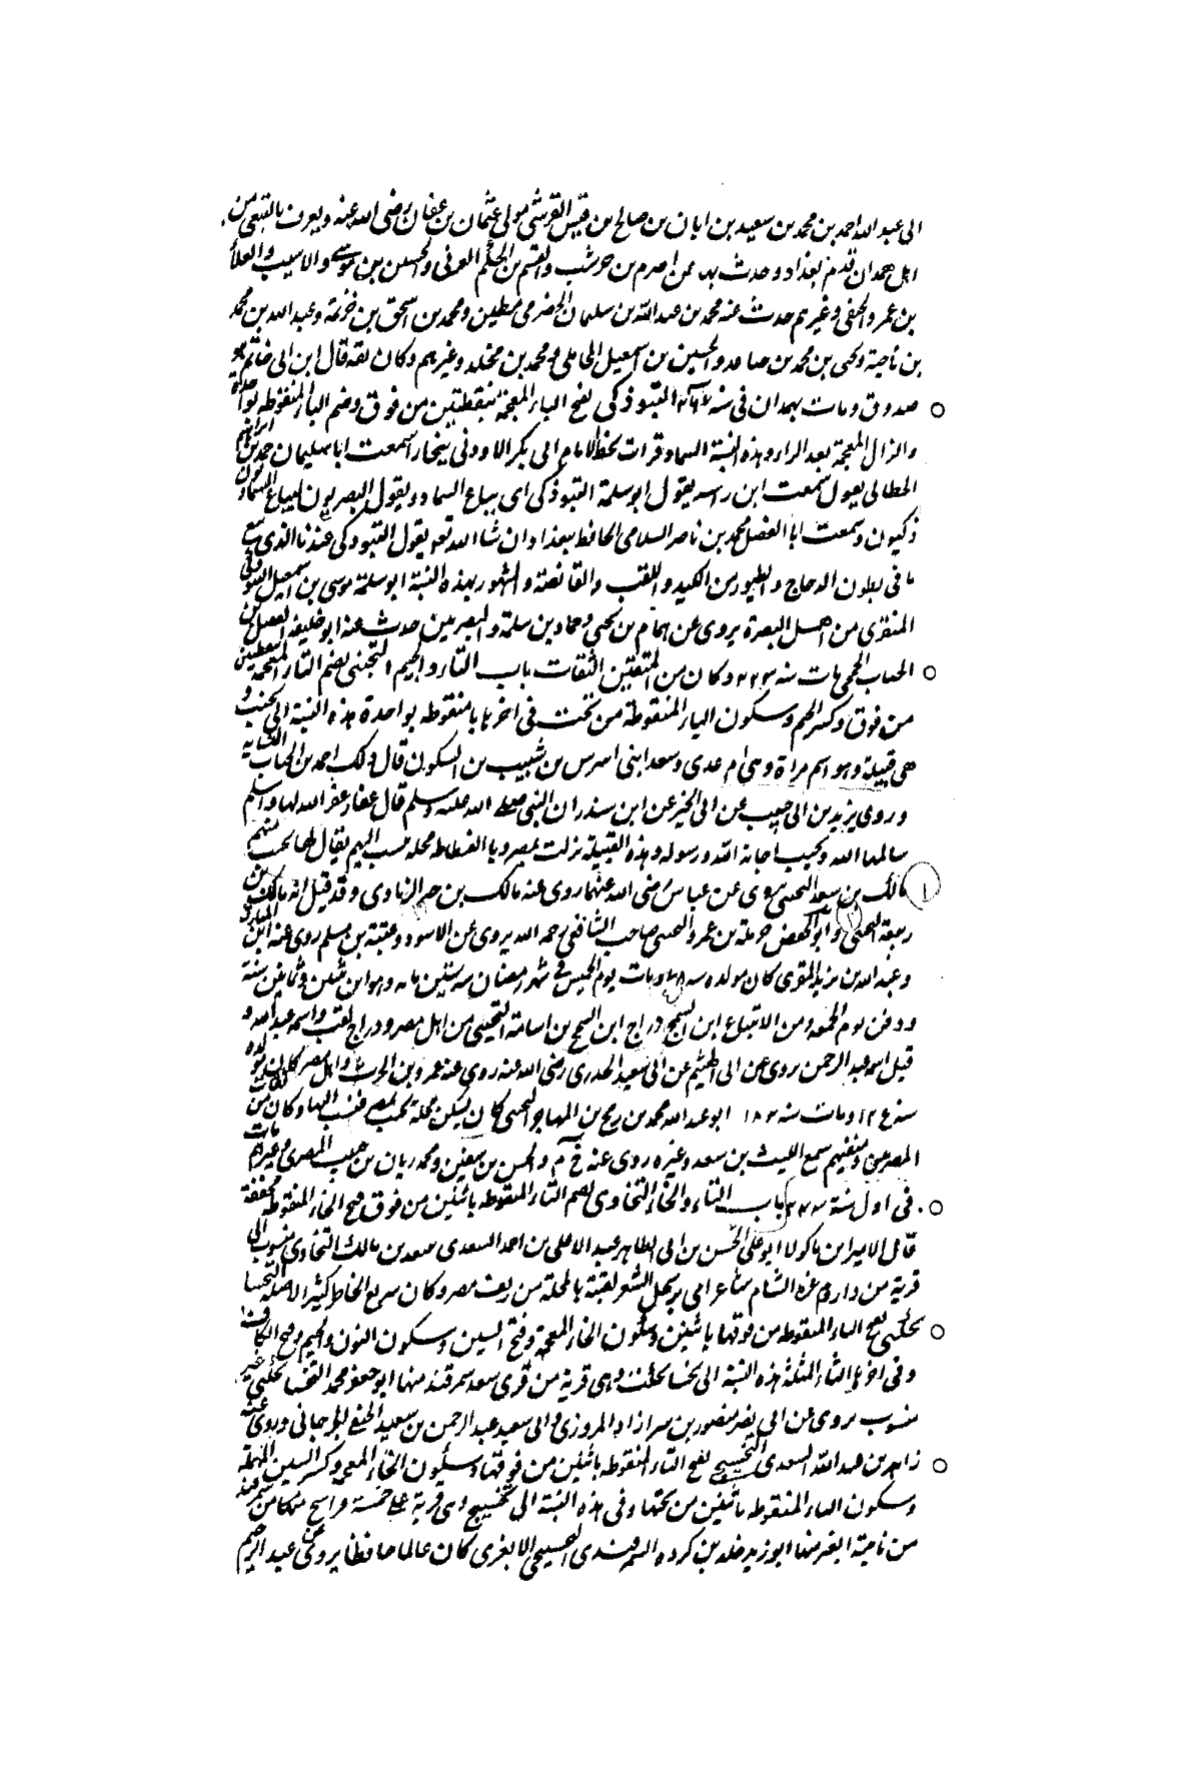 الى عبد الله احمد بن محمد بن سعيد بن ابان بن صالح بن قيس القرشي مولى عثمان بن عفان رضى الله عنه ويعرف بالتبعى من
اهل همدان قدم بغداد وحدث بها عن اصرم بن حوشب والقسم بن الحكم العرنى والحسين بن موسى الاسيب والعلأ
بن عمرو الحنفى وغيرهم حدث عنه محمد بن عبد الله بن سليمان الحضرمى مطين ومحمد بن اسحق بن خزيمة وعبد الله بن محمد
بن ناجية ويحى بن محمد بن صاعد والحسين بن اسمعيل المحاملى ومحمد بن مخلد وغيرهم وكان ثقه قال ابن ابى حاتم هو
صدوق ومات بهمدان فى سنه التبوذكى بفتح التاء المعجمة بنقطتين من فوق وضم الباء المنقوطه بواحدة
والذال المعجمة بعد الواو هذه النسبة السماد قرات بخط الامام ابى بكر الاودنى ببخارا سمعت ابا سليمان حمد بن ابراهيم
الخطابى يقول سمعت ابن داسه يقول ابو سلمة التبوذكى اى بياع السماد ويقول البصريون لبياع السماد
ذكيون وسمعت ابا الفضل محمد بن ناصر السلامى الحافظ ببغداد ان شا الله تع يقول التبوذكى عندنا الذى يبيع
ما فى بطون الدجاج والطيور من الكبد والقلب والقانصة والمشهور بهذه النسبة ابو سلمة موسى بن اسمعيل التبوذكى
المنقرى من اهل البصرة يروى عن همام بن يحيى وحماد بن سلمة والبصريين حدث عنه ابو خليفه الفضل بن
الحباب الجمحى مات سنه ٢٢٣ وكان من المتقنين الثقات باب التاء والجيم التجيبى بضم التاء المعجمة بنقطتين
من فوق وكسر الجيم وسكون الياء المنقوطة من تحت فى اخرها با منقوطه بواحدة هذه النسبة الى تجيب و
هى قبيلة وهو اسم مراة وهى ام عدى وسعد ابنى اسرس بن شبيب بن السكون قال ذلك احمد بن الحباب النسابه
وروى يزيد بن ابى حبيب عن ابى الخير عن ابن سندر ان النبى صلى الله عليه وسلم قال غفار غفر الله لها واسلم
سالمها الله وتجيب اجابت الله ورسوله وهذه القبيلة نزلت بمصر وبا الفسطاط محلة تنسب اليهم يقال لها تجيب منهم
مالك بن سعد التجيبى روى عن عباس رضى الله عنهما روى عنه مالك بن خير الزبادى وقد قيل انه مالك بن
ربيعة التجيبى وابو حفص حرملة بن عمرو التجيبى صاحب الشافعى رحمه الله يروى عن الاسود وعقبة بن مسلم روى عنه ابن المبارك
وعبد الله بن يزيد المقرى كان مولده سه ومات يوم الخميس فى شهر رمضان سه ستين مايه وهو ابن ثمنين وثمانين سنة
ودفن يوم الجمعه ومن الاتباع ابن السمح دراج ابن السمح بن اسامة التجيبى من اهل مصر ودراج لقب واسمه عبد الله و
قيل اسمه عبد الرحمن روى عن ابى الهيثم عن ابى سعيد الخدرى رضى الله عنه روى عنه عمرو بن الحرث واهل مصر كان مولده
سنه ومات سنه ابو عبد الله محمد بن رمح بن المهاجر التجيبى كان يسكن محلة تجيب بمصر فنسب اليها وكان من ثقات
المصريين ومتقنيهم سمع الليث بن سعد وغيره روى عنه خ م والحسن بن سفين ومحمد ريان بن حبيب المصرى وغيرهم مات
فى اول سنة باب التاء والخاء التخاوى بضم التاء المنقوطه باثنين من فوق وفتح الخاء المنقوطه مخففة
قال الامير ابن ماكولا ابو على الحسن بن ابى الطاهر عبد الاعلى بن احمد السعدى سعد بن مالك التخاوى منسوب الى
قرية من داروم غزه الشام شاعر امى يرتجل الشعر لقيته بالمحلة من ريف مصر وكان سريع الخاطر كثير الاصابه التخسا
نجكثى بفتح التاء المنقوطه من فوقها باثنين وسكون الخاء المعجمة وفتح السين وسكون النون والجيم وفتح الكاف
وفى اخرها الثاء المثلثة هذه النسبة الى تخسانجكث وهى قرية من قرى سغد سمرقند منها ابو جعفر محمد التخسانجكثى غير
منسوب يروى عن ابى نصر منصور بن شهرزاد المروزى وابى سعيد عبد الرحمن بن سعيد الجرجانى وروى عنه
زاهر بن عبد الله السعدى التخسيجى بفتح التاء المنقوطه باثنين من فوقها وسكون الخاء المعجمة وكسر السين المهملة
وسكون الياء المنقوطه باثنين من تحتها وفى هذه النسبة الى تخسيج وهى قرية على خمسة فراسخ من سمرقند
من ناحية ابغر منها ابو زيد خلد بن كرده السمرقندى التخسيجى الابغرى كان عالما حافظا يروى عن عبد الرحيم